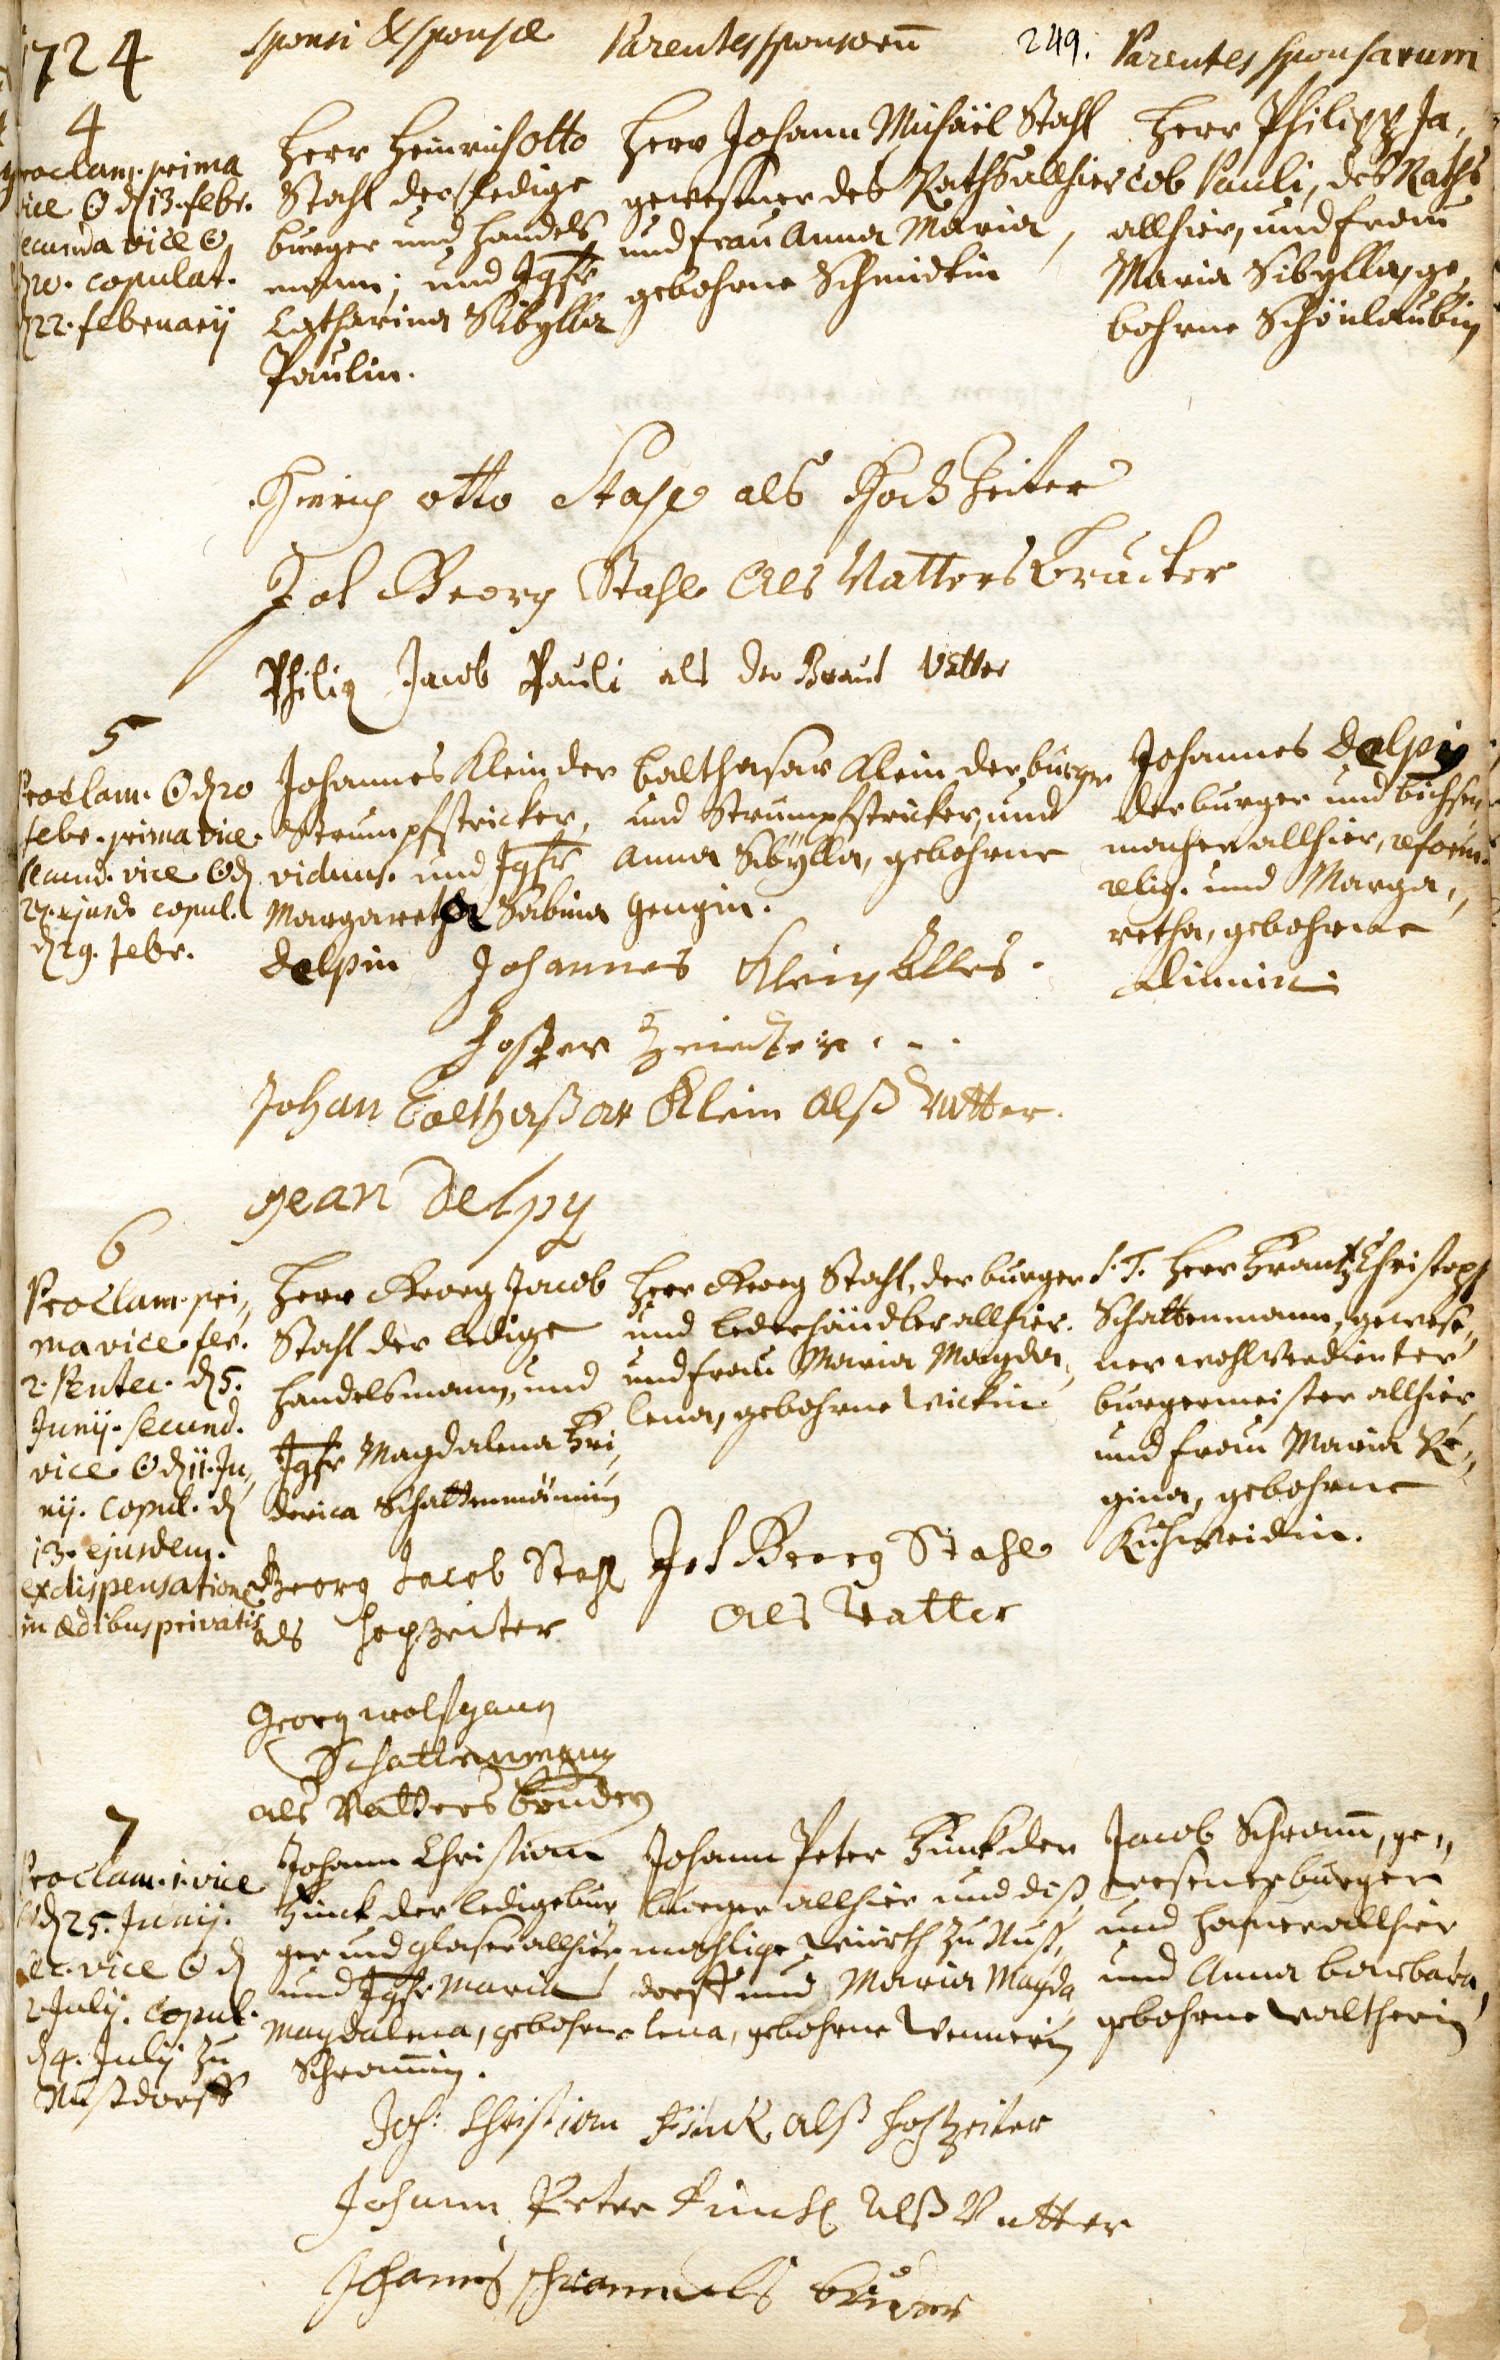 1724
sponsi & sponsæ
Parentes sponsorū
249.
Parentes sponsarum
4
proclam. prima
vice ☉ d 13. febr.
secunda vice ☉
20. copulat.
d 22. februarij
Herr Heinrich Otto
Stahl der ledige
burger und handels
mann; und Jgfr
Catharina Sibylla
Paulin.
Herr Johann Michaël Stahl
gewesener des Raths allhier
und frau Anna Maria,
gebohrne Schmidtin
Herr Philipp Ja,
cob Pauli, des Raths
allhier, und frau
Maria Sibylla, ge,
bohrne Schönlaubin
Heinrich otto Stahl als Hochzeiter
Joh Georg Stahl als Vatters Brueder
Philip Jacob Pauli als der Braut Vatter
5
Proclam. ☉ d 20
febr. prima vice.
secund. vice ☉ d
27. ejusd. copul.
d 29. febr.
Johannes Klein der
Strumpfstricker,
viduus. und Jgfr
Margaretha Sabina
Delpin
Balthasar Klein der burger
und Strumpfstricker, und
Anna Sibylla, gebohrne
Gengin.
Johannes Delpy
der burger und büchsen,
macher allhier, reform.
relig. und Marga,,
retha, gebohrne
Johannes Klein Alles.
Johan Balthaßar Klein alß Vatter.
Jean Delpy
6
Proclam. pri,,
ma vice fer.
2. Pentec. d 5.
Junij. secund.
vice ☉ d 11. Ju,,
nij. Copul. d
13. ejusdem.
ex dispensatione
in ædibus privatis
Herr Georg Jacob
Stahl der ledige
handelsmann, und
Jgfr Magdalena Fri,
derica Schattenmännin
Herr Georg Stahl, der burger
und lederhändler allhier.
und frau Maria Magda,
lena, gebohrne Wickin.
S. T. Herr Frantz Christoph
Schattenmann, gewese,,
ner wohlverdienter
burgermeister allhier,
und frau Maria Re,,
gina, gebohrne
Kuhweidin.
Georg Jacob Stahl
als Hochzeiter
Joh Georg Stahl
als Vatter
Georg wolfgang
Schattenmann
als Vatters bruder
7
Proclam. 1. vice
☉ d 25. Junij.
sec. vice ☉ d
2 Julij. copul.
d 4. Julij zu
Nußdorff
Johann Christian
Finck der ledige bur
ger und glaser allhier,
und Jgfr. Maria
Magdalena, gebohrne
Schrammin.
Johann Peter Finck der
burger allhier und diß,
mahlige Würth zu Nuß,
dorff und Maria Magda
lena, gebohrne Wennerin
Jacob Schram̄, ge,,
wesener burger
und hafner allhier
und Anna barbara,
gebohrne Waltherin
Joh: Christian Finck alß Hochzeiter
Johann Peter Finck alß Vatter
Johanes schramm als bruder